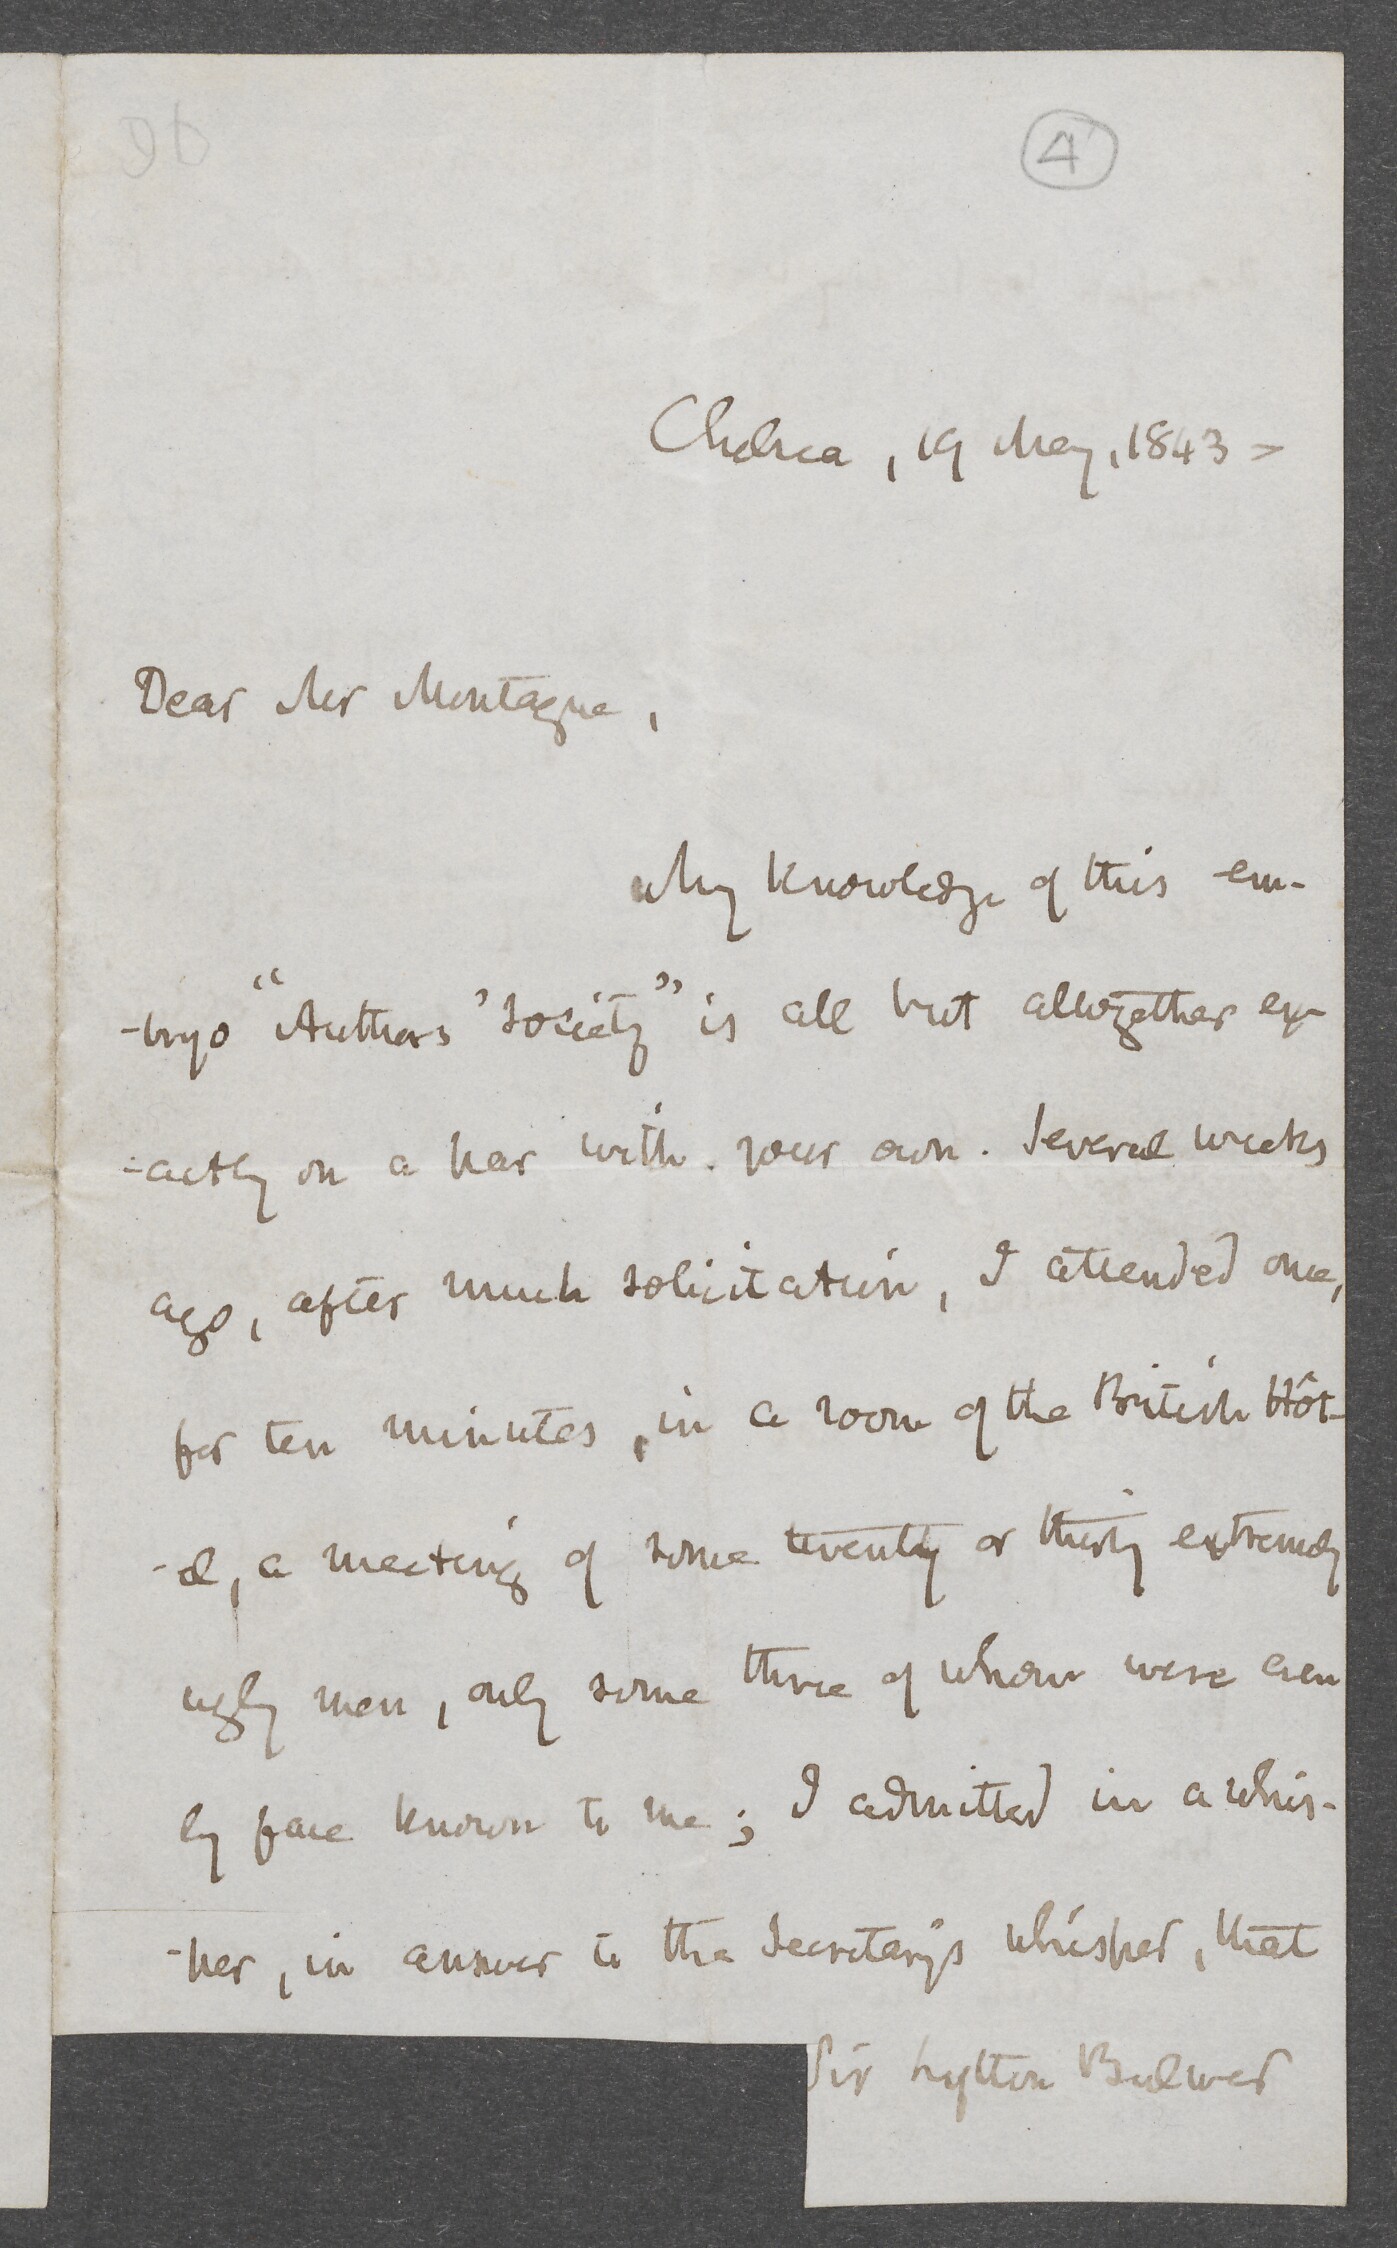 4
Chelsea, 19 May, 1843 -
Dear Mr Montague,
My knowledge of this em-
-bryo "Authors' Society" is all but altogether ex-
-actly on a par with your own. Several weeks
ago, after much solicitation, I attended once,
for ten minutes, in a room of the British Hôt-
-el, a meeting of some twenty or thirty extremely
ugly men, only some three of whom were even
by face known to me; I admitted in a whis-
-per, in answer to the Secretary's whisper, that
Sir Lytton Bulwer